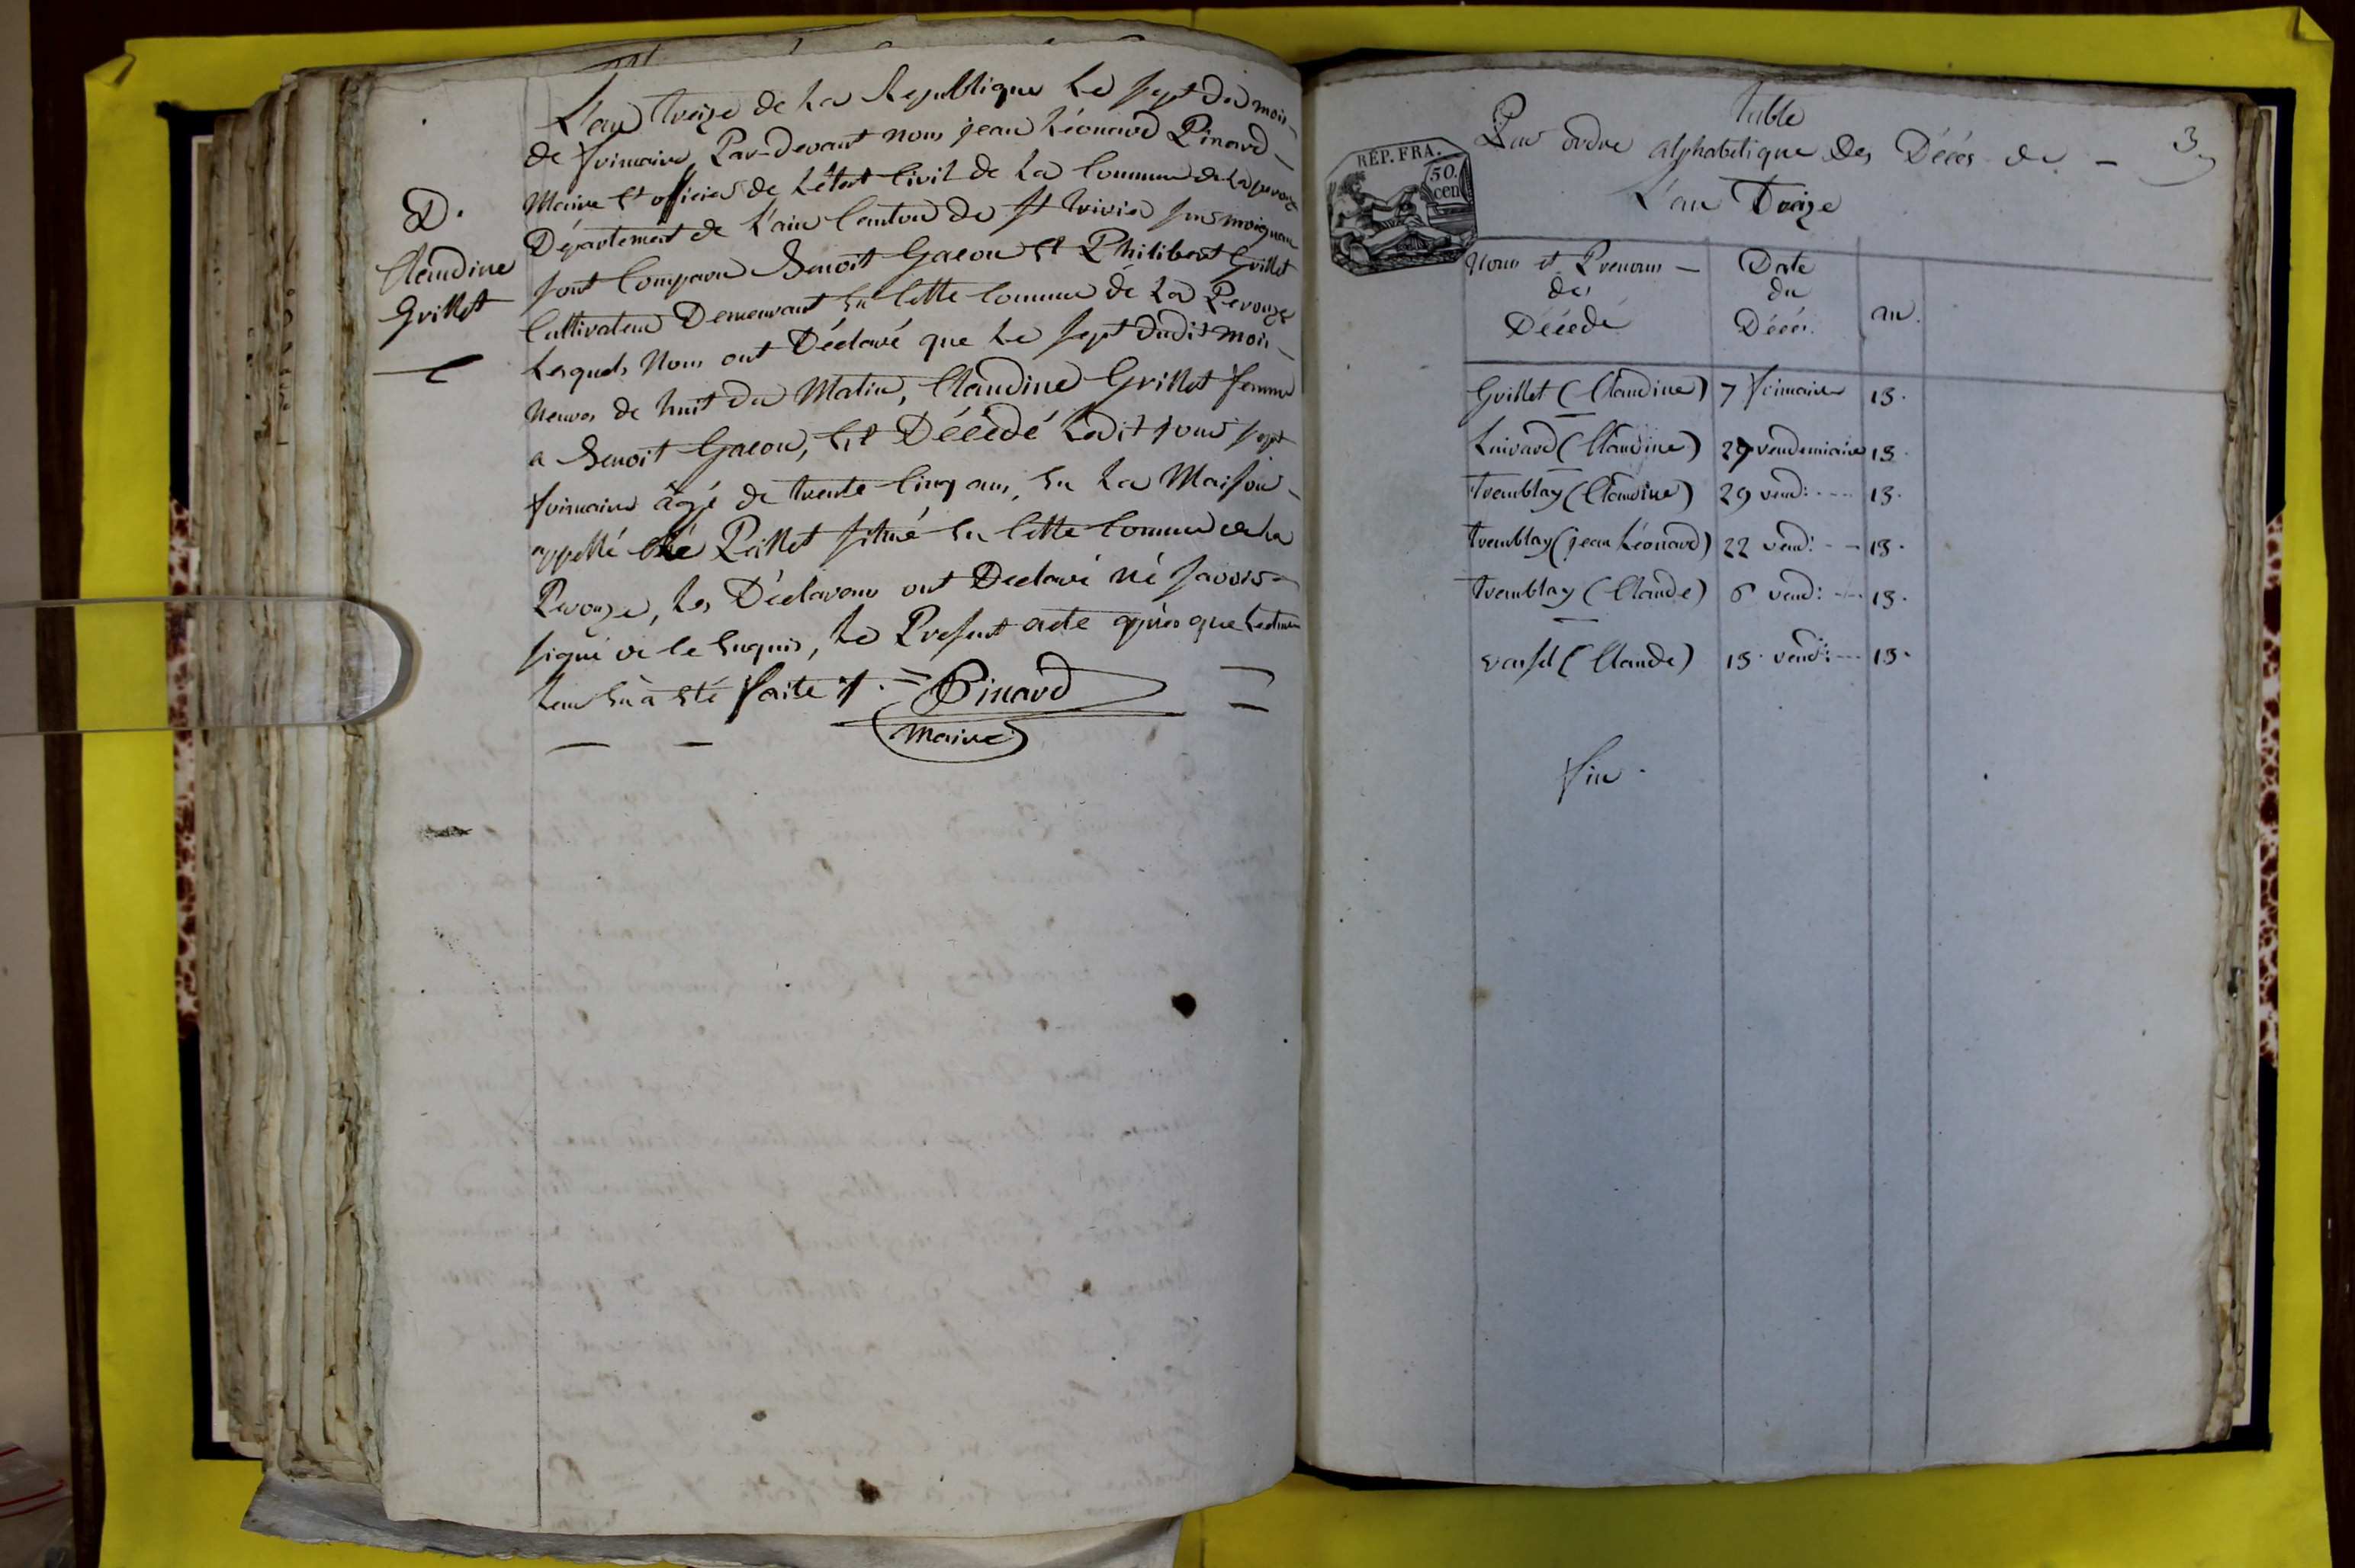 L'an treize de La Republique Le sept du mois
de frimaire, Par-devant nous jean Léonard Pinard
Maire et officier de L'état Civil de La Commune de La perouze
Département de L'ain Canton de St trivier sur moignan
sont Comparu Benoit Gacon et Philibert Grillet
Cultivateur Demeurant en Cette Commune de La Perouze
Lesquels Nous ont Déclaré que Le sept dudit mois
heures de huit du Matin, Claudine Grillet femme
a Benoit Gacon, Est Décédé Ledit jour sept
frimaire âgé de trente Cinq ans, en La Maison
appellé Péillet situé en Cette Commune de La
Perouze, Les Déclarans ont Declaré né savoir
signé de Ce Enquis, Le Present acte après que Lecture
Leur en a été faite /. = Pinard
Maire
D.
Claudine
Grillet
Table
Par ordre alphabetique Des Décès de -
3
L'an Treize
RÉP. FRA.
50.
cen
Noms et Prenoms - Date
de du an.
Décédé Décès.
Grillet (Claudine) 7 frimaire 13.
Luivard (Claudine) 29 vendemiaire 13.
Tremblay (Claudine) 29 vend: --- 13.
Tremblay (jean Léonard) 22 vend: -- 13.
Tremblay (Claude) 6 vend: --- 13.
(Claude) 13. vend: --- 13.
fin.